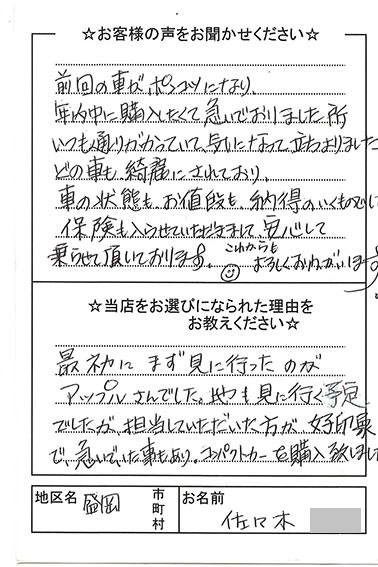 ☆お客様の声をお聞かせください☆
前回の車がポンコツになり、
年内中に購入したくて急いでおりました所
いつも通りがかっていて、気になって立ちよりました
どの車も、綺麗にされており、
車の状態も、お値段も、納得のいくもので
保険も入らせていただきまして安心して
乗らせて頂いております。これからも
よろしくおねがいします
☆当店をお選びになられた理由を
お教えください☆
最初に まず見に行ったのが
アップルさんでした。他も見に行く予定
でしたが、担当していただいた方が、好印象
で、急いでいた事もあり、コンパクトカーを購入致しました
地区名 盛岡 市町村 お名前 佐々木